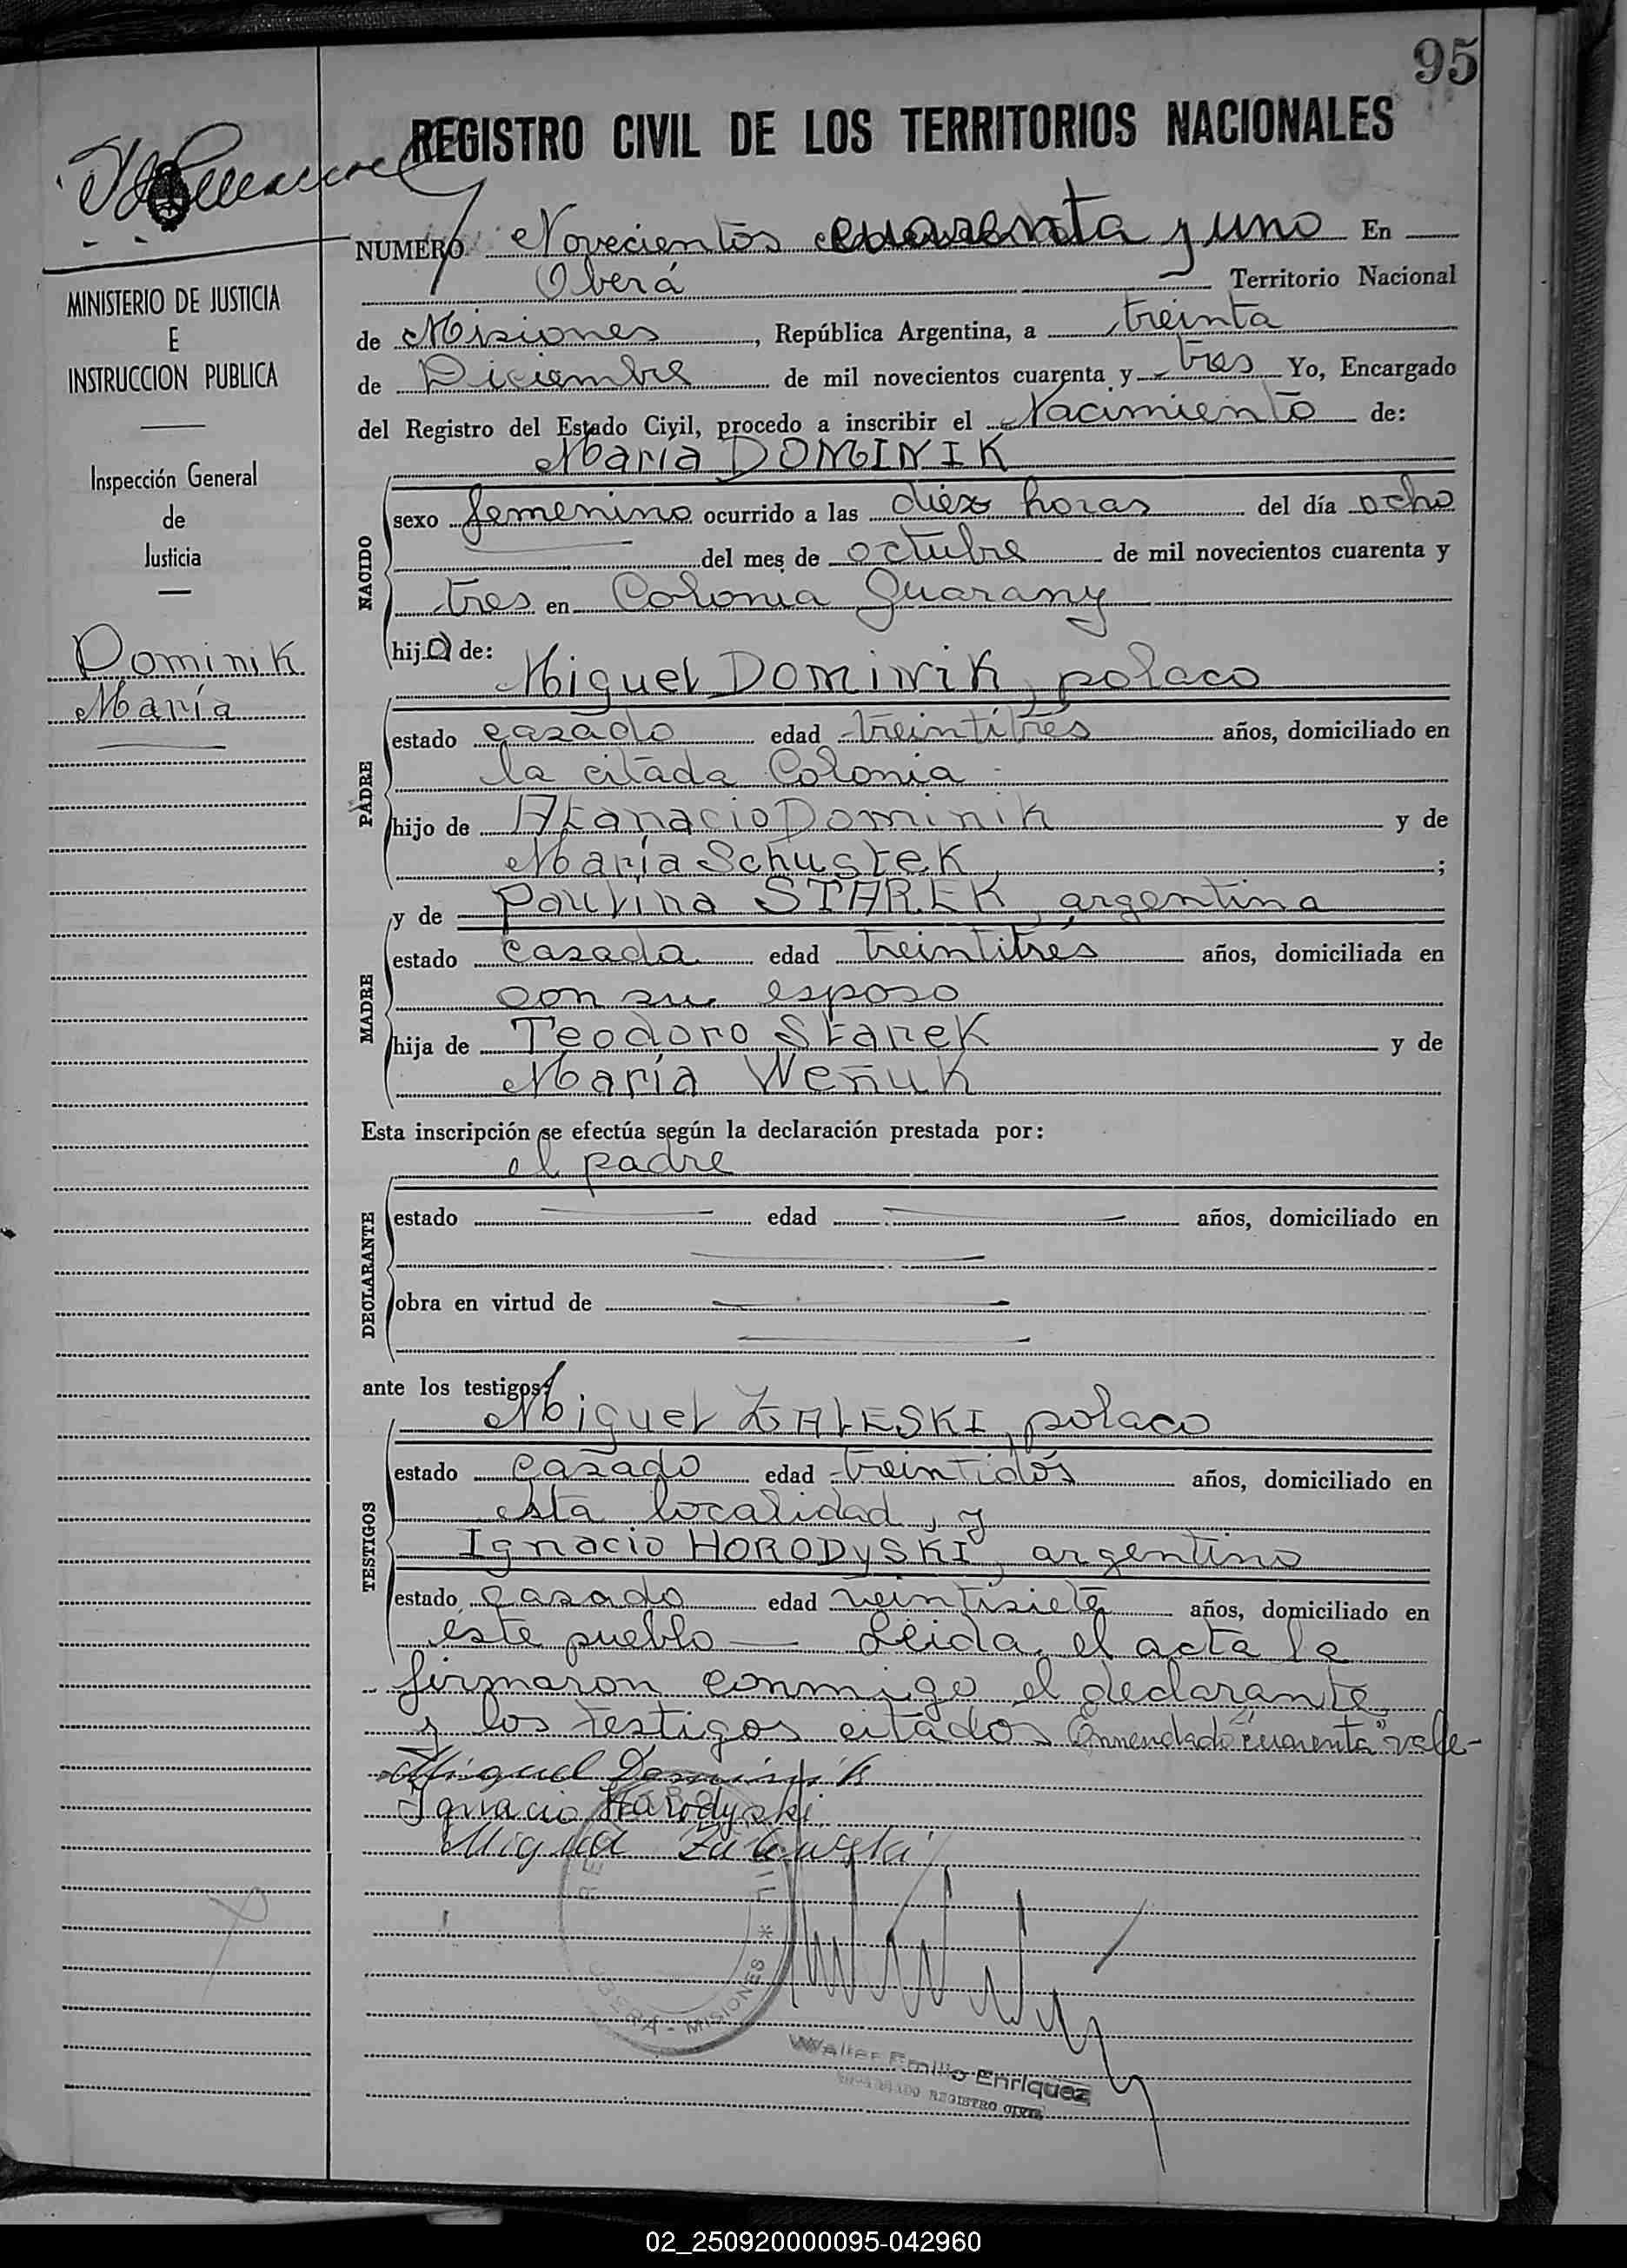 95
REGISTRO CIVIL DE LOS TERRITORIOS NACIONALES
NUMERO Novecientos cuarenta y uno En
Oberá Territorio Nacional
de Misiones, República Argentina, a treinta
de Diciembre de mil novecientos cuarenta y tres Yo, Encargado
del Registro del Estado Civil, procedo a inscribir el Nacimiento de:
Maria DOMINIK
NACIDO
sexo femenino ocurrido a las diez horas del día ocho
del mes de octubre de mil novecientos cuarenta y
tres en Colonia Guarany
hija de:
Miguel DOMINIK, polaco
PADRE
estado casado edad treintitrés años, domiciliado en
la citada Colonia
hijo de Atanacio Dominik y de
María Schustek ;
y de Paulina STAREK, argentina
MADRE
estado casada edad treintitrés años, domiciliada en
con su esposo
hija de Teodoro Starek y de
María Weñuk
Esta inscripción se efectúa según la declaración prestada por:
el padre
DECLARANTE
estado edad años, domiciliado en
obra en virtud de
ante los testigos:
Miguel ZALESKI, polaco
TESTIGOS
estado casado edad treintidós años, domiciliado en
esta localidad, y
Ignacio HORODYSKI, argentino
estado casado edad veintisiete años, domiciliado en
éste pueblo — Leida el acta la
firmaron conmigo el declarante
y los testigos citados Enmendado "cuarenta" vale-
Miguel Dominik
Ignacio Horodyski
Miguel
OBERÁ - MISIONES *
Walter Emilio Enriquez
ENCARGADO REGISTRO CIVIL
MINISTERIO DE JUSTICIA
E
INSTRUCCION PUBLICA
Inspección General
de
Justicia
Dominik
María
02_250920000095-042960